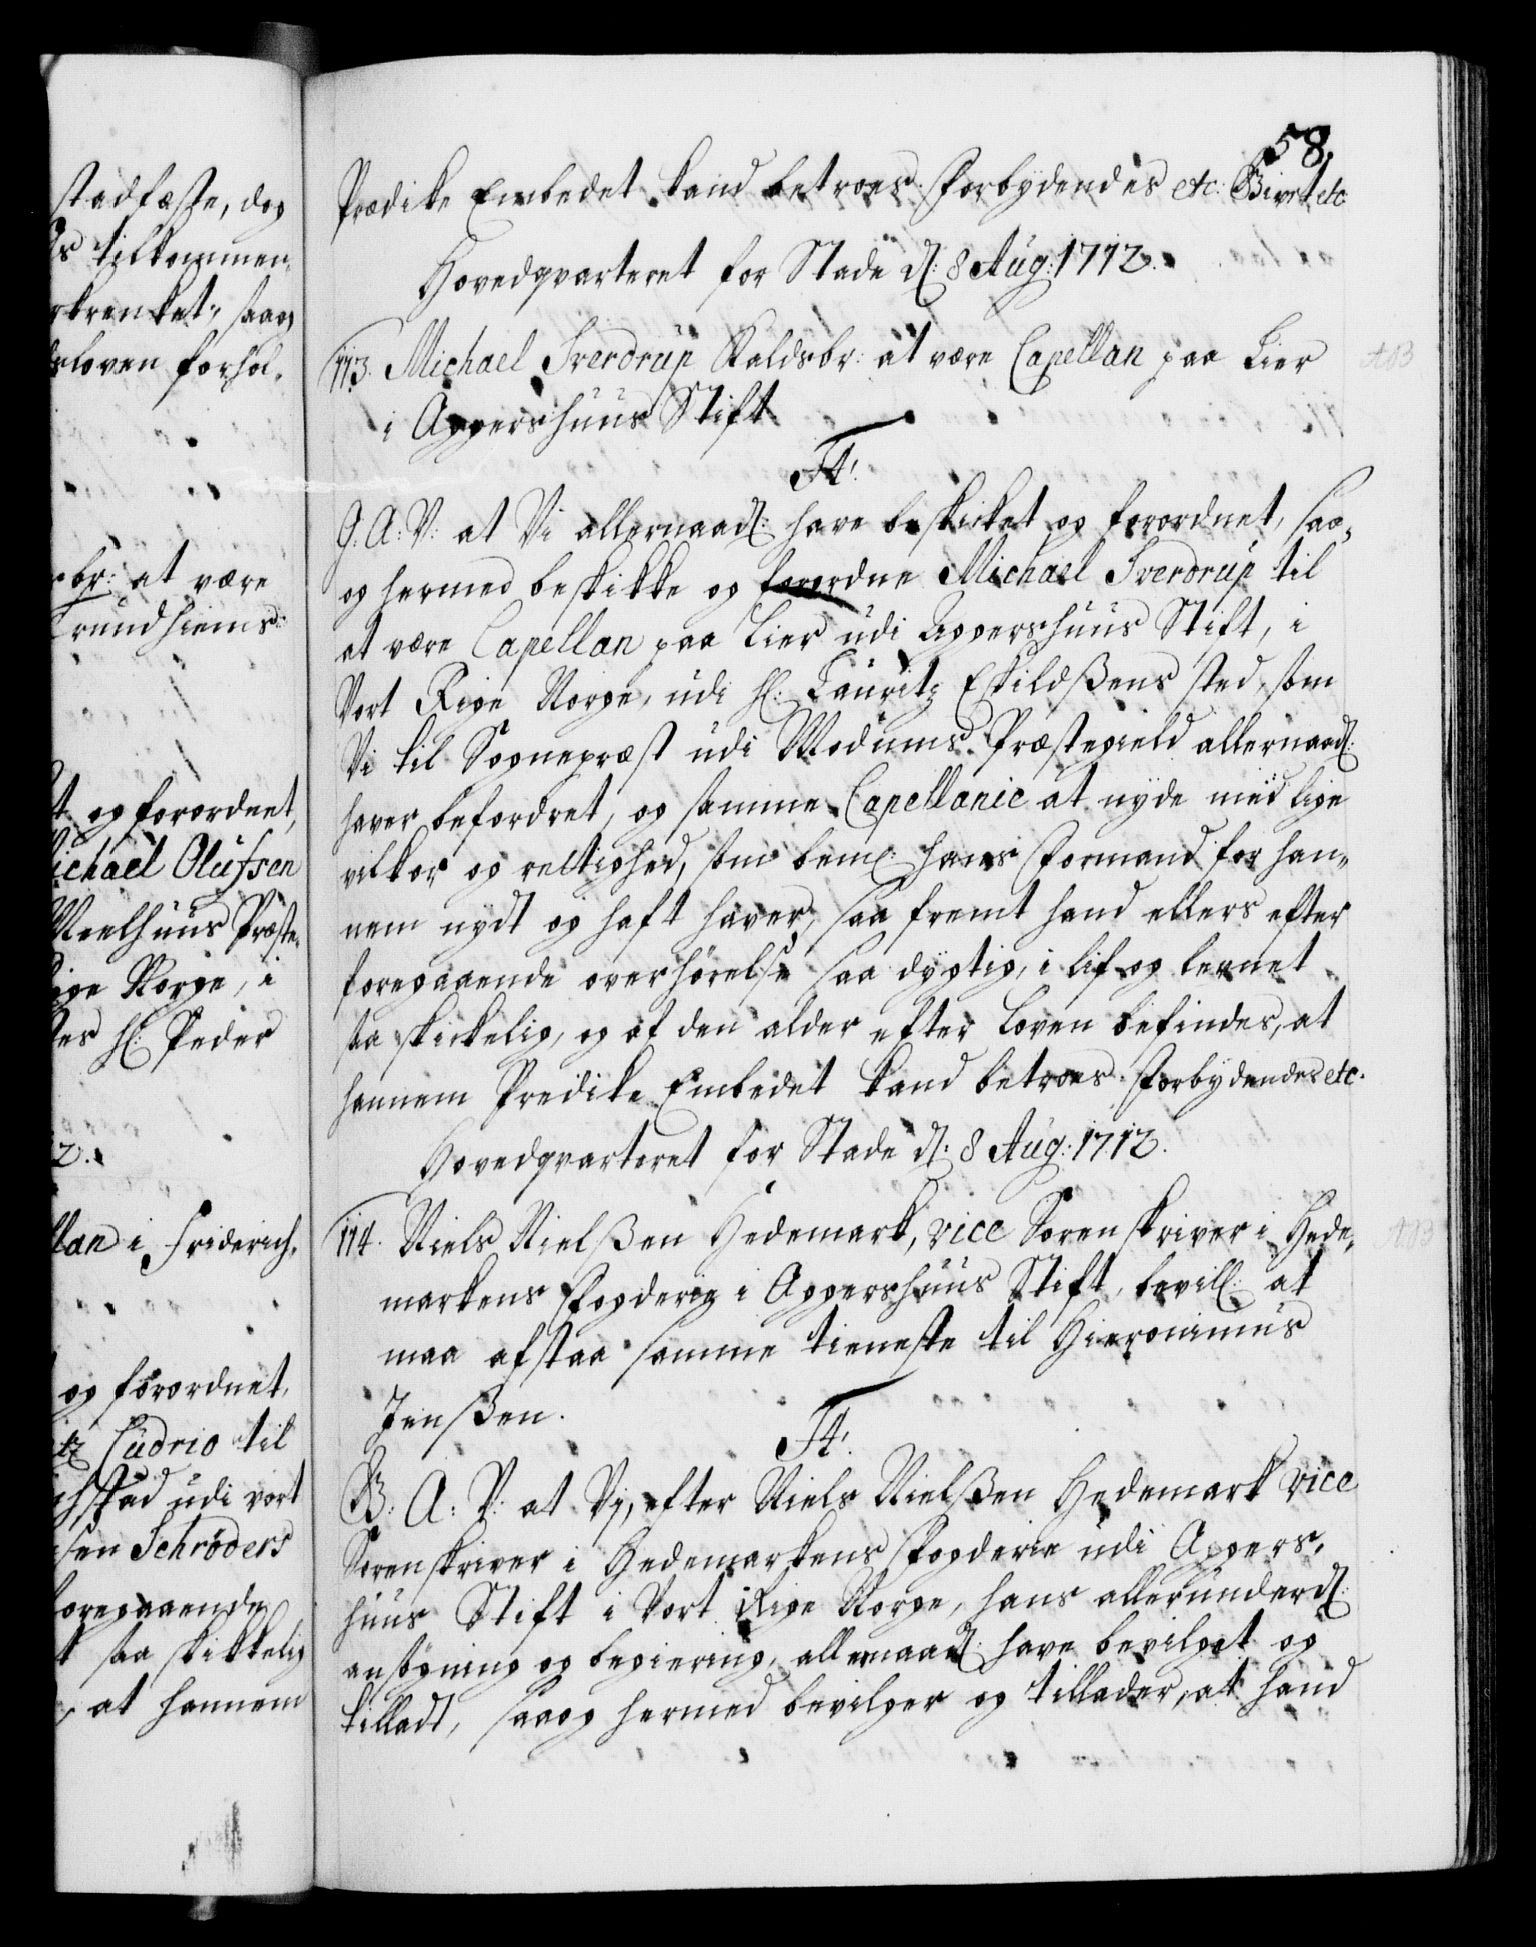 stadfæste, dog
Os tilkommen-
rkrenket, saa og
sloven forhol-
rbr: at være
Trundhiems
t og forordnet,
ichael Olufsen
Meelhuus Præste-
ige Norge, i
es Hr: Peder
2.
lan i Friderich-
og forordnet,
itz Cudrio til
chstad udi vort
sen Schrøders
foregaaende
t saa skikkelig
, at hannem
58
Prædike Embedet kand betroes. Forbydendes etc: Givet etc
Hovedqvarteret for Stade d: 8 Aug: 1712.
113. Michael Sverdrup Kaldsbr: at være Capellan paa Lier
i Aggershuus Stift
F4!
G: A: V: at Vi allernaad: have beskicket og forordnet, saa-
og hermed beskikke og forordne Michael Sverdrup til
at være Capellan paa Lier udi Aggershuus Stift, i
Vort Rige Norge, udi Hr: Lauritz Eskildßens sted, som
Vi til Sognepræst udi Modums Præstegield allernaad:
haver befordret, og samme Capellanie at nyde med lige
vilkor og rettighed, som bem: hans Formand for han-
nem nydt og haft haver, saa fremt hand ellers efter
foregaaende overhørelse saa dygtig, i lif og lernet
saa skickelig, og af den alder efter Loven befindes, at
hannem Predike Embedet kand betroes. Forbydendes etc.
Hovedqvarteret for Stade d: 8 Aug: 1712.
114. Niels Nielßen Hedemark, vice Sorenskriver i Hede-
markens Fogderie i Aggershuus Stift, bevill: at
maa afstaa samme tieneste til Hieronimus
Jenßen.
F4!
G: A: V: at Vj, efter Niels Nielßen Hedemark vice
Sorenskriver i Hedemarkens Fogderie udi Aggers-
huus Stift i Vort Rige Norge, hans allerunderd:
ansøgning og begiering, allernaad: have bevilget og
tilladt, saa og hermed bevilger og tillader, at hand